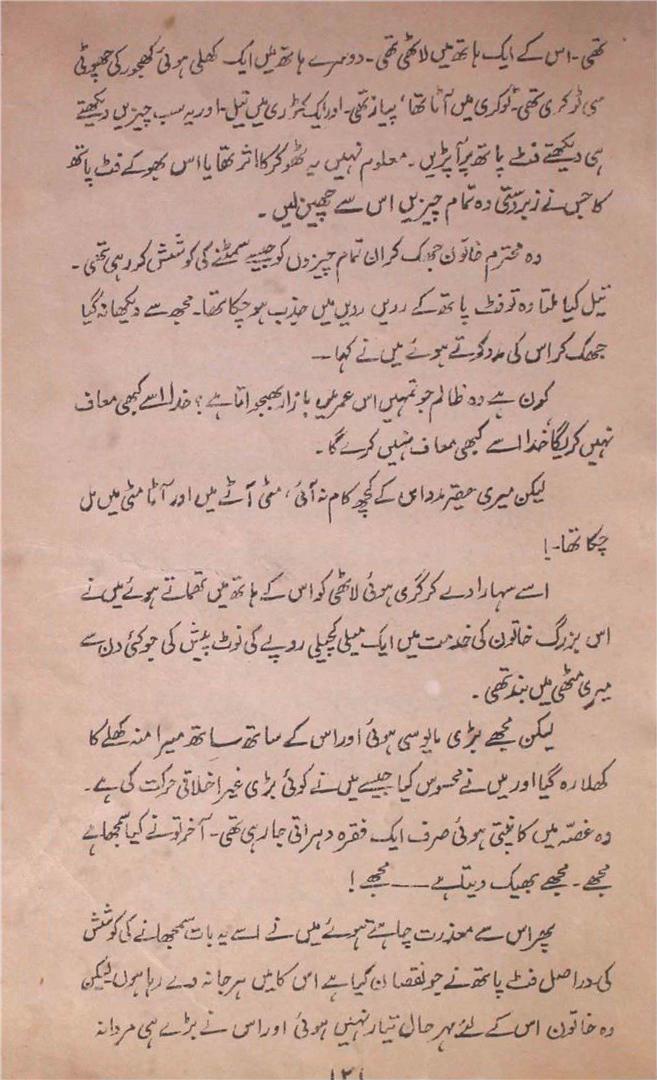 تھی۔ اس کے ایک ہاتھ میں لاٹھی تھی۔ دوسرے ہاتھ میں ایک کھلی ہوئی کھجور کی چھوٹی
سی ٹوکری تھی۔ ٹوکری میں آٹا تھا، پیاز تھی۔ اور ایک کٹوری میں تیل۔ اور یہ سب چیزیں دیکھتے
ہی دیکھتے فٹ پاتھ پر آ پڑیں۔ معلوم نہیں یہ ٹھوکر کا اثر تھا یا اس بھوکے فٹ پاتھ
کا جس نے زبردستی وہ تمام چیزیں اس سے چھین لیں۔
وہ محترم خاتون جھک کر ان تمام چیزوں کو جیسے سمٹنے کی کوشش کر رہی تھی۔
تیل کیا ملتا وہ تو فٹ پاتھ کے رویں رویں میں جذب ہو چکا تھا۔ مجھ سے دیکھا نہ گیا
جھک کر اس کی مدد کرتے ہوئے میں نے کہا —
کون ہے وہ ظالم جو تمہیں اس عمر میں بازار بھجواتا ہے؟ خدا اسے کبھی معاف
نہیں کریگا، خدا اسے کبھی معاف نہیں کرے گا۔
لیکن میری حقیر مدد اس کے کچھ کام نہ آئی، مٹی آٹے میں اور آٹا مٹی میں مل
چکا تھا۔!
اسے سہارا دے کر گری ہوئی لاٹھی کو اس کے ہاتھ میں تھماتے ہوئے میں نے
اس بزرگ خاتون کی خدمت میں ایک میلی کچیلی روپے کی نوٹ پیش کی جو کئی دن سے
میری مٹھی میں بند تھی۔
لیکن مجھے بڑی مایوسی ہوئی اور اس کے ساتھ ساتھ میرا منہ کھلے کا
کھلا رہ گیا اور میں نے محسوس کیا جیسے میں نے کوئی بڑی غیر اخلاقی حرکت کی ہے۔
وہ غصّہ میں کانپتی ہوئی صرف ایک فقرہ دہراتی جا رہی تھی۔ آخر تو نے کیا سمجھا ہے
مجھے۔ مجھے بھیک دیتا ہے —— مجھے!
پھر اس سے معذرت چاہتے ہوئے میں نے اسے یہ بات سمجھانے کی کوشش
کی دراصل فٹ پاتھ نے جو نقصان کیا ہے اس کا میں ہرجانہ دے رہا ہوں لیکن
وہ خاتون اس کے لئے بہر حال تیار نہیں ہوئی اور اس نے بڑے ہی مردانہ